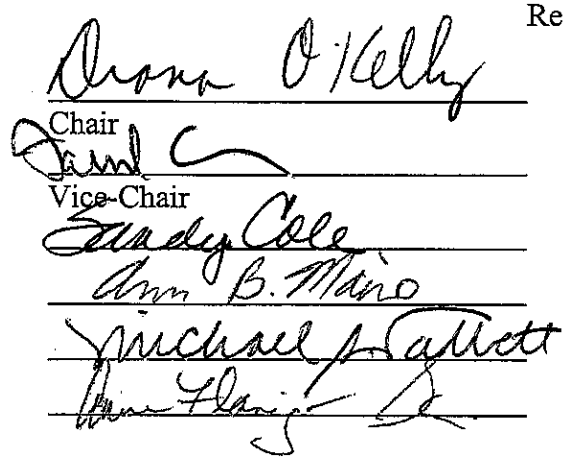 Re
Diana O'Kelly
Chair
Vice-Chair
Sandy Cole
Ann B. Maine
Michael
Anne Flanigan